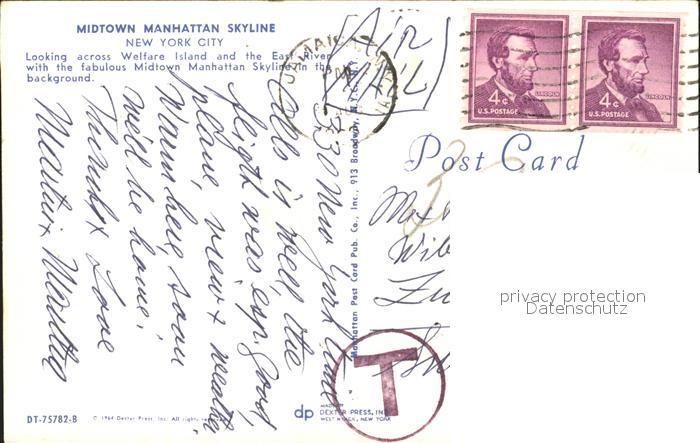 MIDTOWN MANHATTAN SKYLINE
NEW YORK CITY
Looking across Welfare Island and the East River
with the fabulous Midtown Manhattan Skyline in the
background.
AIR
MAIL
4¢
LINCOLN
U.S. POSTAGE
4¢
LINCOLN
U.S. POSTAGE
Post Card
3:30 New York time
All is well, the
flight was esp. good,
plane, view & weather
Warm here, soon
we'll be home!
Thanks & Love
Manhattan Post Card Pub. Co., Inc., 913 Broadway, N.Y.C., N.Y.
privacy protection
Datenschutz
T
DT-75782-B
© 1964 Dexter Press, Inc. All rights reserved
dp
DEXTER PRESS, INC.
WEST NYACK, NEW YORK